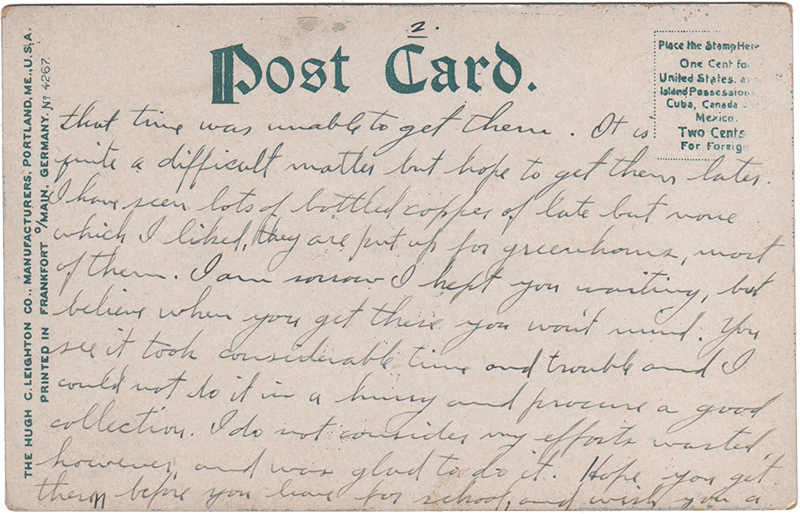 2.
Post Card.
Place the Stamp Here
One Cent fo
United States, an
Island Possessions
Cuba, Canada
Mexico.
Two Cents
For Foreign
that time was unable to get them. It is
quite a difficult matter but hope to get them later.
I have seen lots of bottled copper of late but none
which I liked, they are put up for greenhorns, most
of them. I am sorrow I kept you waiting, but
believe when you get these you won't mind. You
see it took considerable time and trouble and I
could not do it in a hurry and procure a good
collection. I do not consider my efforts wasted,
however, and was glad to do it. Hope you get
them before you leave for school, and wish you a
THE HUGH C. LEIGHTON CO., MANUFACTURERS, PORTLAND, ME., U.S.A.
PRINTED IN FRANKFORT o/MAIN, GERMANY. No 4267.